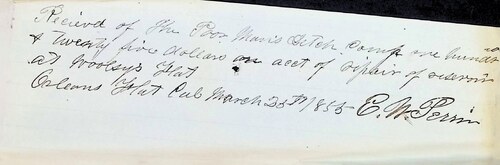 Recieved of The Poor Man's Ditch Comp one hundred
& twenty five dollars on acct of ripair of reservoir
at Woolsys Flat
Orleans Flat Cal March 25th 1855 E. W. Perrin